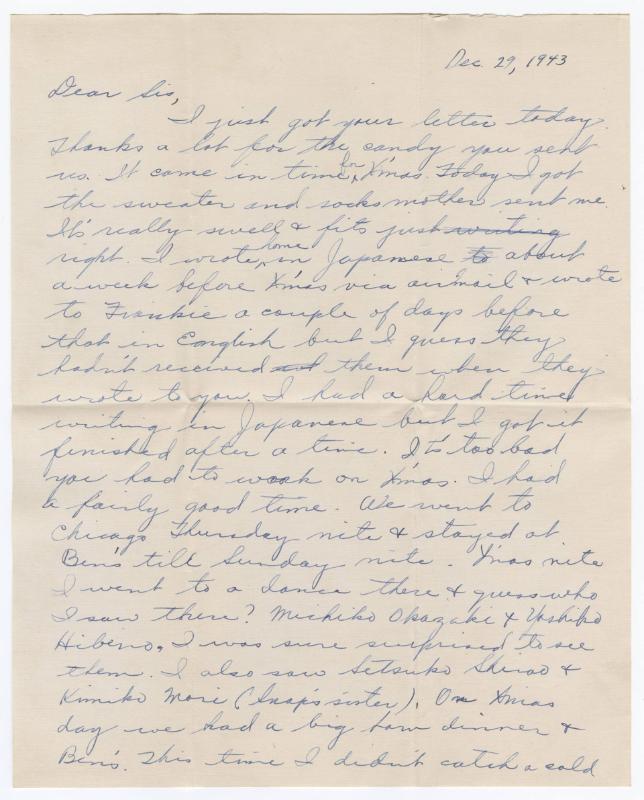 Dec. 29, 1943
Dear Sis,
I just got your letter today.
Thanks a lot for the candy you sent
us. It came in time for X'mas. Today I got
the sweater and socks mother sent me.
It's really swell & fits just writing
right. I wrote home in Japanese to about
a week before X'mas via airmail & wrote
to Frankie a couple of days before
that in English but I guess they
hadn't received them when they
wrote to you. I had a hard time
writing in Japanese but I got it
finished after a time. It's too bad
you had to work on X'mas. I had
a fairly good time. We went to
Chicago Thursday nite & stayed at
Ben's till Sunday nite. X'mas nite
I went to a dance there & guess who
I saw there? Michiko Okazaki & Yoshiko
Hibino. I was sure surprised to see
them. I also saw Setsuko Shirao &
Kimiko Mori (Snap's sister). On X'mas
day we had a big ham dinner &
Ben's. This time I didn't catch a cold